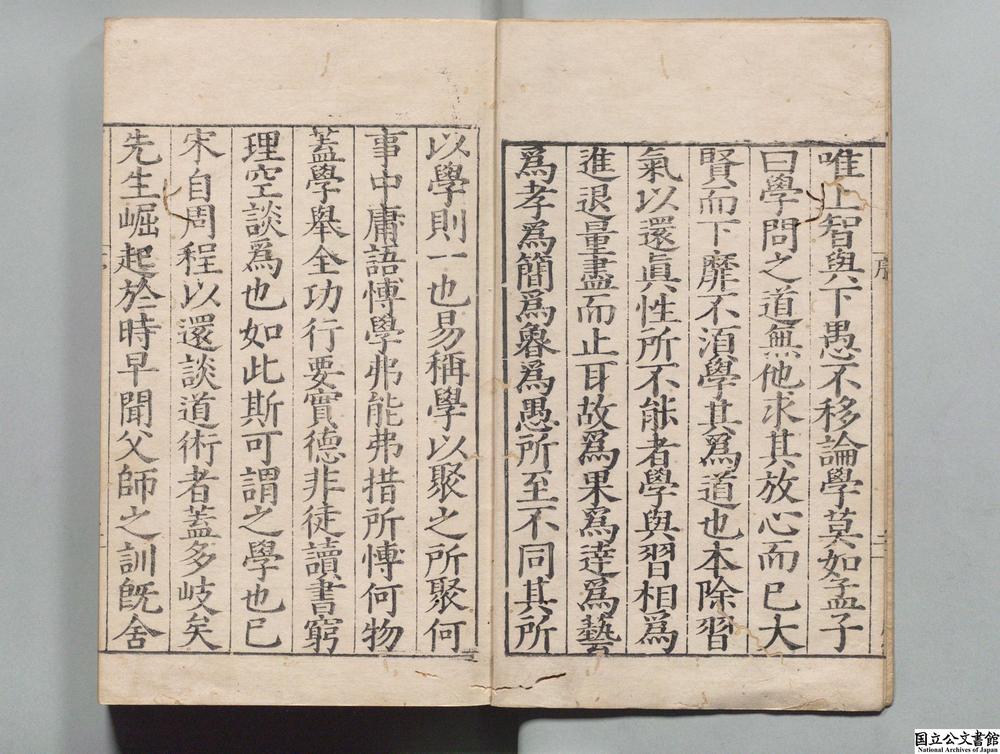 唯上智與下愚不移論學莫如孟子
曰學問之道無他求其放心而已大
賢而下靡不須學其爲道也本除習
氣以還眞性所不能者學與習相爲
進退量盡而止耳故爲果爲達爲藝
爲孝爲簡爲魯爲愚所至不同其所
以學則一也易稱學以聚之所聚何
事中庸語愽學弗能弗措所愽何物
蓋學舉全功行要實德非徒讀書窮
理空談爲也如此斯可謂之學也已
宋自周程以還談道術者蓋多岐矣
先生崛起於時早聞父師之訓旣舍
国立公文書館
National Archives of Japan